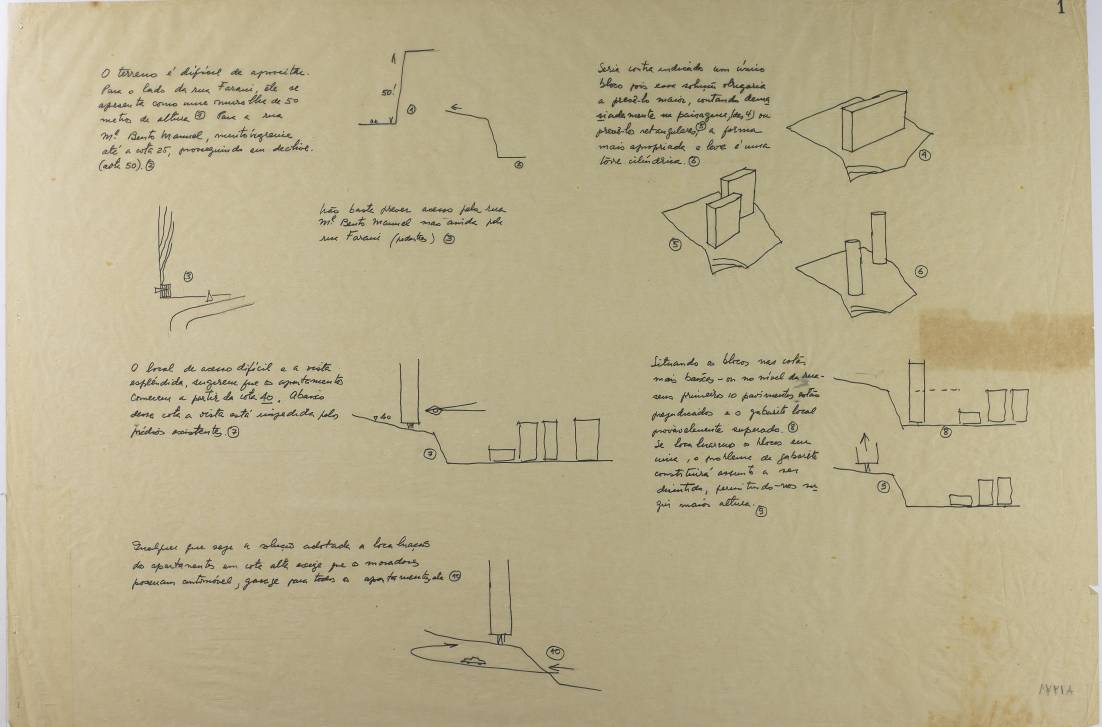 1
O terreno é difícil de aproveitar.
Para o lado da rua Farani, êle se
apresenta como uma muralha de 50
metros de altura ① Para a rua
Mal. Bento Manuel, muito íngreme
até a cota 25, prosseguindo em declive.
(cota 50). ②
50'
①
②
Não basta prever acesso pela rua
Mal. Bento Manuel mas ainda pela
rua Farani (pedestres) ③
③
Seria contra indicado um único
bloco pois essa solução obrigaria
a prevê-lo maior, contando dema
siadamente na paisagem, (des. 4) ou
prevê-los retangulares, ⑤ a forma
mais apropriada e leve é uma
torre cilíndrica. ⑥
④
⑤
⑥
O local de acesso difícil e a vista
esplêndida, sugerem que os apartamentos
comecem a partir da cota 40. Abaixo
dessa cota a vista está impedida pelos
prédios existentes. ⑦
40
⑦
Situando os blocos nas cotas
mais baixas - ou no nível da rua -
seus primeiros 10 pavimentos estão
prejudicados e o gabarito local
provavelmente superado. ⑧
Se localizarmos os blocos em
cima, o problema de gabarito
constituirá assunto a ser
discutido, permitindo-nos
maior altura. ⑨
⑧
⑨
Qualquer que seja a solução adotada a localização
dos apartamentos em cota alta exige que os moradores
possuam automóvel, garage para todos os apartamentos ⑩
⑩